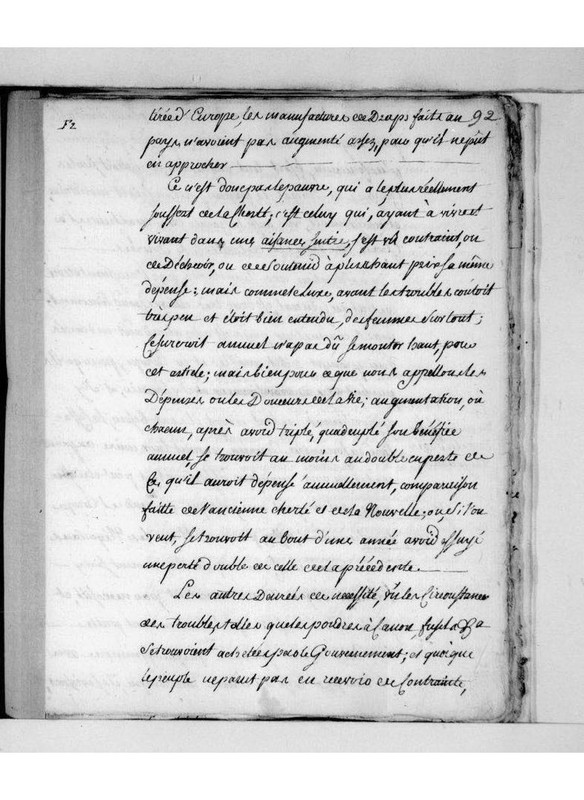 F2
tirée d'Europe les manufactures de Draps faits au 92
pays n'avoient pas augmenté assez, pour qu'il ne pût
en approcher
Ce n'est donc pas le pauvre, qui a le plus réellement
souffert de la cherté; c'est celuy qui, ayant à vivre et
vivant dans une aisance suivie, s'est vû contraint, ou
de Déchoir, ou de soutenir à plus haut prix sa même
dépense: mais comme le Luxe, avant les troubles coutoit
tres peu et étoit bien entendu, des femmes surtout;
le surcroit annuel n'a pas dû se monter haut, pour
cet article; mais bien pour ce que nous appellons les
Dépenses ou les Douceurs de la Vie; augmentation, où
chacun, après avoir triplé, quadruplé son bénéfice
annuel se trouvoit au moins au double en perte de
ce qu'il auroit dépensé annuellement, comparaison
faitte de l'ancienne cherté et de la Nouvelle; ou, si l'on
veut, se trouvoit au bout d'une année avoir essuyé
une perte double de celle de la précédente.
Les autres Denrées de necessité, vû les Circonstances
des troubles, telles que les poudres à Canon, fusils &ca
se trouvoient achetées par le Gouvernement; et quoique
le peuple ne parut pas en recevoir de Contrainte,